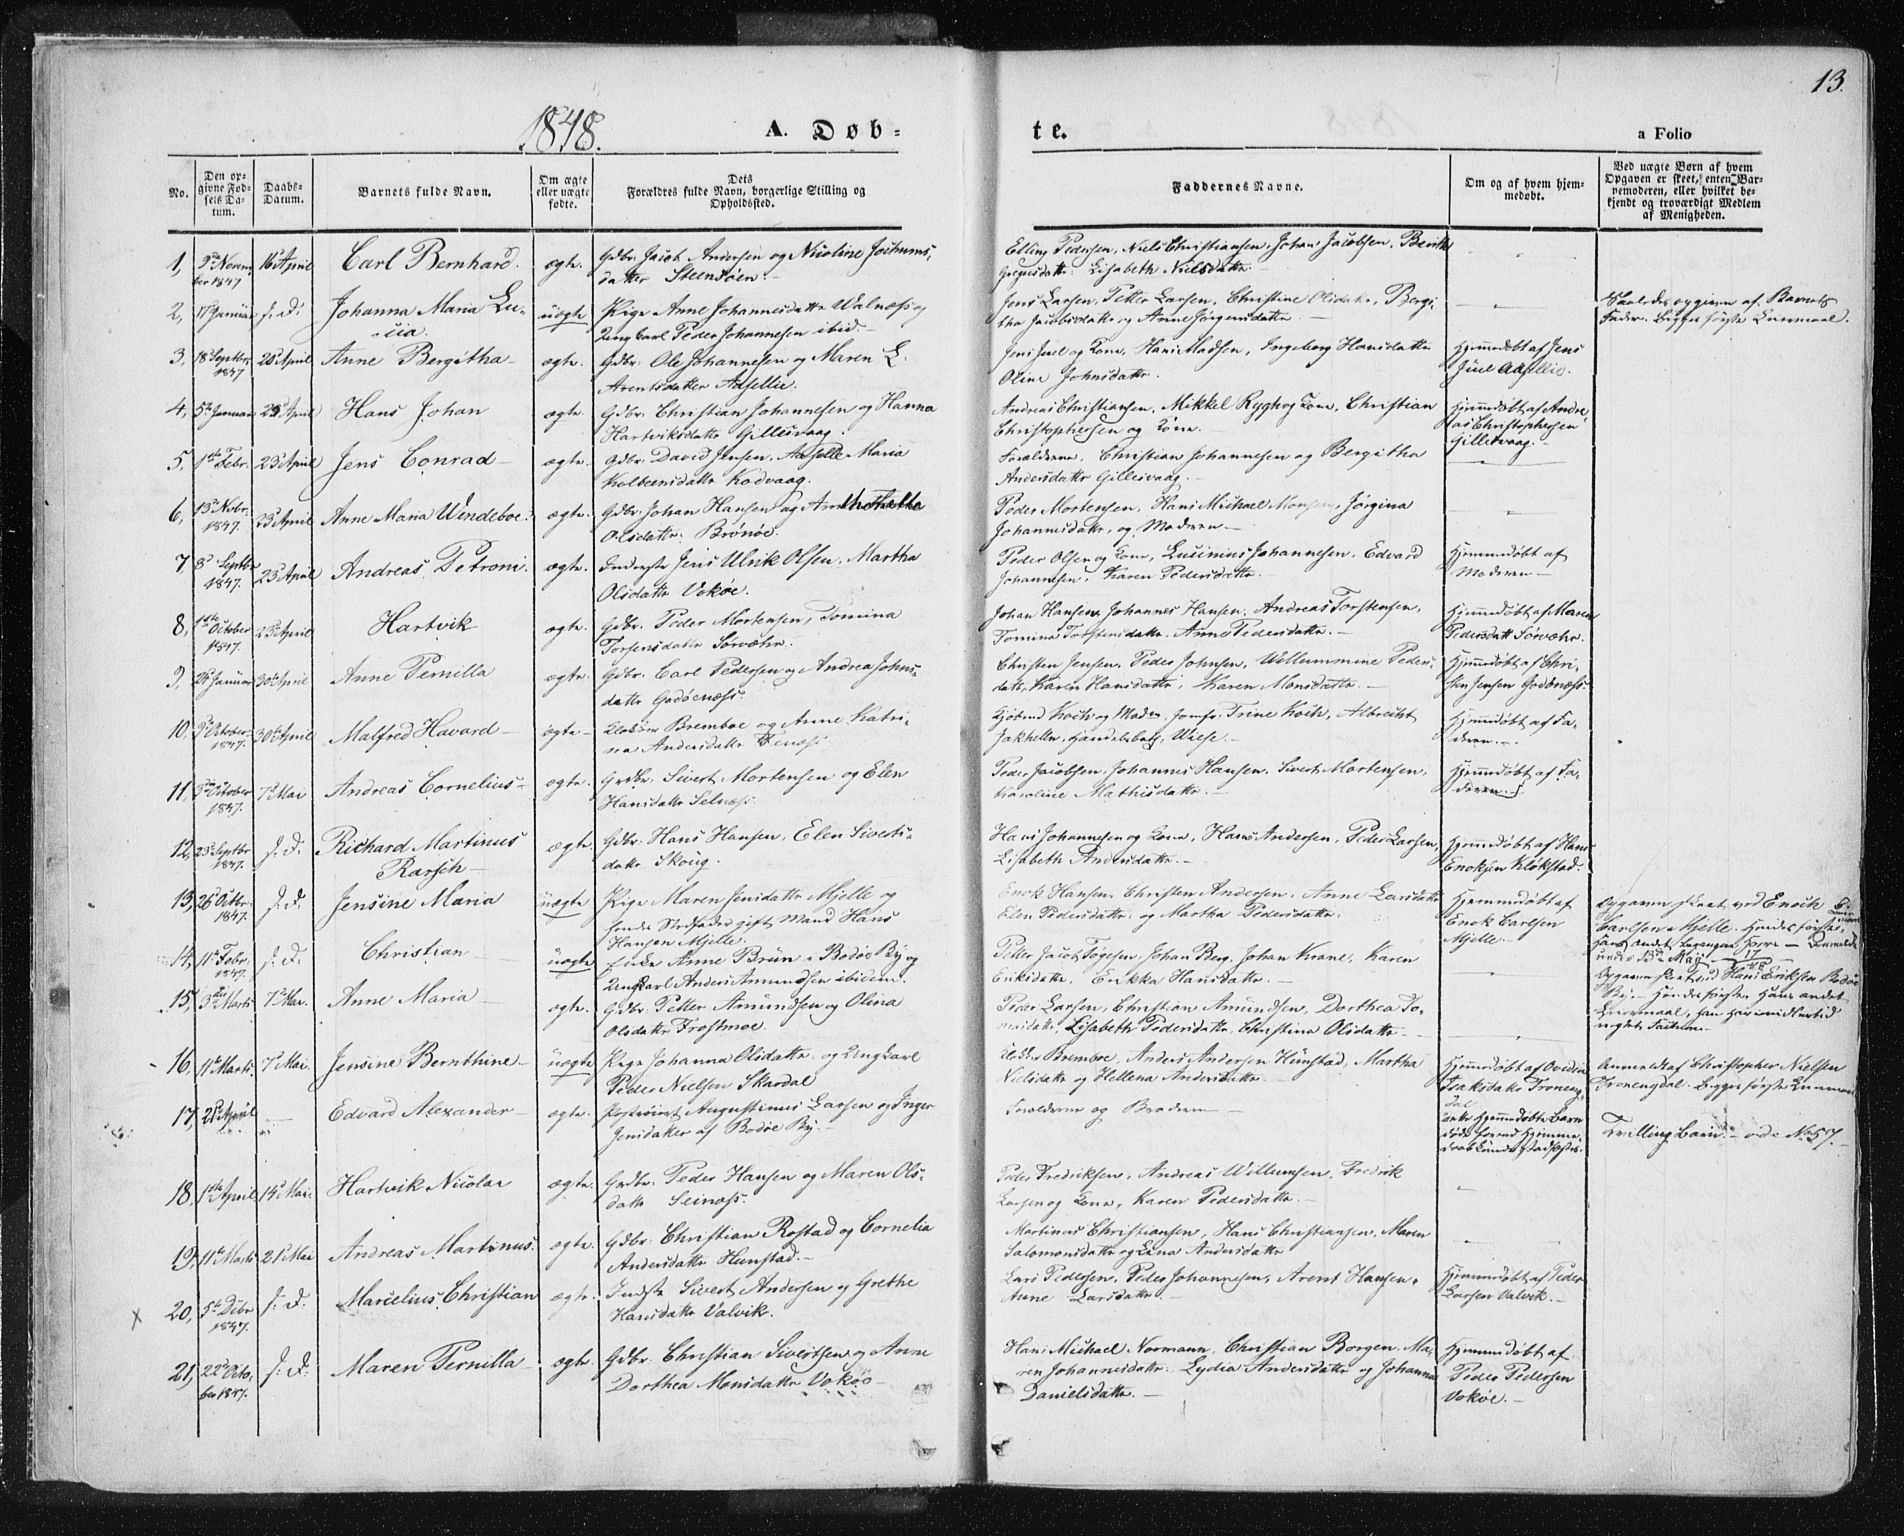 13.
1848.
A. Døb-
te.
a Folio
No.
Den opgivne Fødsels Datum.
Daabs-Datum.
Barnets fulde Navn.
Om ægte eller uægte fødte.
Dets Forældres fulde Navn, borgerlige Stilling og Opholdssted.
Faddernes Navne.
Om og af hvem hjemmedøbt.
Ved uægte Børn af hvem Opgaven er skeet, enten Barnemoderen, eller hvilket bekjendt og troværdigt Medlem af Menigheden.
1, Novem
ber 1847 16 April Carl Bernhard. ægte. Gdbr. Jacob Andersen og Nicoline Jochums,
datter
Edling Pedersen, Niels Christiansen, Johan Jacobsen, Berith
Lisabeth Nielsdatter
2, 17 Januar s. D. Johanna Maria Lu-
cia. uægte Pige Anne Johannesdatter Valnæs og
Ungkarl Peder Johannesen ibid.
Jens Larsen, Petter Larsen, Christine Olsdatter, Bergi-
tha Jacobsdatter og Anne Jørgensdatter.
opgiven af Barnets
Fader. Begges første Leiermaal.
3, 18 Septbr.
1847 April Anne Bergitha ægte. Gdbr. Ole Johannesen og Maren L.
Arentsdatter
Jens Juel og Kone, Hans Madsen, Ingeborg Hansdatter
Oline Johnsdatter.
Hjemmedøbt af Jens
Juel
4, 5te Januar 25 April Hans Johan ægte. Gdbr. Christian Johannesen og Hanna
Hartviksdatter Gillesvaag.
Andreas Christiansen, Mikkel Rygh og Kone, Christian
Christophersen og Kone.
Hjemmedøbt af Andre,
as Christophersen
Gillesvaag.
5, 1ste Febr. 23 April Jens Conrad ægte. Gdbr. David Jensen, Maria
Kodvaag.
Forældrene, Christian Johannesen og Bergitha
Andersdatter Gillesvaag.
6, 13 Novbr.
1847. 23 April Anne Maria Windeboe. ægte. Gdbr. Johan Hansen og
Olsdatter. Brønøe.
Peder Mortensen, Hans Michael Monsen, Jørgina
Johannesdatter, og Moderen
7 8 Septbr
1847. 23 April Andreas Petroni. ægte. Inderste Jens Ulrik Olsen, Martha
Olsdatter Vokøe.
Peder Olsen og Kone, Lucinius Johannesen, Edvard
Johannesen, Karen Pedersdatter.
Hjemmedøbt af
Moderen
8, 1ste October
1847. 23 April Hartvik ægte. Gdbr. Peder Mortensen, Tomina
Sørvær.
Johan Hansen, Johannes Hansen, Andreas Torstensen,
Tomina Torstensdatter, Anne Pedersdatter.
Hjemmedøbt af Maren
Pedersdatt
9, Januar 30 April Anne Pernilla ægte. Gdbr. Carl Pedersen og Andrea Johns-
datter Godøenæss.
Christen Jensen, Peder Johnsen, Willummine Peders-
datter, Karen Hansdatter, Karen Monsdatter.
Hjemmedøbt af Chri-
sten Jensen
10, October
1847. 30 April Malfred Havard ægte Bremboe og Anne Katri-
na Andersdatter
Koch og Moder, Jomfr. Trine Koch, Albrecht
Jakhelln, Wiese.
Hjemmedøbt af Fa-
deren.
11, October
1847. 7 Mai Andreas Cornelius ægte. Gdbr. Sivert Mortensen og Elen
Hansdatter Selnæs.
Peder Jacobsen, Johannes Hansen, Sivert Mortensen,
Karoline Mathisdatter.
Hjemmedøbt af Fa-
deren.
12, 23 Septbr
1847 s. D. Richard Martinus
Rarsch ægte Gdbr. Hans Hansen, Elen Siverts-
datter Skoug.
Hans Johannesen og Kone, Hans Andersen, Peder Larsen,
Lisabeth Andersdatter.
Hjemmedøbt af Hans
Enoksen Kløkstad.
13, 26 Octbr.
1847. s. D. Jensine Maria uægte Pige Maren Jensdatter Mjelle og
hendes Stedfader gift Mand Hans
Hansen Mjelle.
Enok Hansen, Christen Andersen, Anne Larsdatter
Elen Pedersdatter og Martha Pedersdatter.
Hjemmedøbt af
Enok Carlsen
Mjelle.
Opgaven skeet ved Enoch
Carlsen Mjelle. Hendes første,
hans andet
14, 11 Febr.
1847. s. D. Christian uægte Enke Anne Brun i Bodøe By og
Ungkarl Anders Amundsen ibidem.
Petter Jacob Tøgesen, Johan Berg, Johan Krane, Karen
Eriksdatter, Erikka Hansdatter.
Opgaven skeet ved Hans Eriksen Bodøe
By. Hendes første, hans andet
Leiermaal,
15, 3die Marts 7 Mai. Anne Maria ægte. Gdbr. Petter Amundsen og Olina
Olsdatter Frostmoe.
Peder Larsen, Christian Amundsen, Dorthea To-
Lisabeth Pedersdatter, Christina Olsdatter
16, 11te Marts 7 Mai. Jensine Bernthine uægte Pige Johanna Olsdatter og Ungkarl
Peder Nielsen Skardal
Bremboe, Anders Andersen Hunstad, Martha
Nielsdatter og Hellena Andersdatter.
Hjemmedøbt af
Isaksdatter
Anmeldt af Christopher Nielsen
Begges første
17, 21 April Edvard Alexander ægte. Augustinus Larsen og Inger
Jensdatter af Bodøe By.
Forældrene og Broderen
dette Hjemmedøbte Barn
døde
Tvilling Barn vide No. 57.
18, 1ste April 14 Mai. Hartvik Nicolai ægte. Gdbr. Peder Hansen og Maren Ols-
datter Seinæss.
Peder Fredriksen, Andreas Willumsen, Fredrik
Larsen og Kone, Karen Pedersdatter.
19, 11te Marts 21 Mai Andreas Martinus. ægte. Gdbr. Christian Rostad og Cornelia
Andersdatter Hunstad.
Martinus Christiansen, Hans Christiansen, Maren
Salomonsdatter og Andersdatter
20, 5te Dcbr
1847. s. D. Marcelius Christian ægte. Indste Sivert Andersen og Grethe
Hansdatter Valvik.
Lars Pedersen, Peder Johannesen, Arent Hansen,
Anne Larsdatter
Hjemmedøbt af Peder
Larsen Valvik.
21, 22 Octo-
ber 1847. s. D. Maren Pernilla ægte Gdbr. Christian Sivertsen og Anne
Dorthea Monsdatter Vokøe
Hans Michael Normann, Christian Borgen, Ma-
ren Johannesdatter, Lydia Andersdatter og Johanna
Danielsdatter.
Hjemmedøbt af
Peder Pedersen
Vokøe.